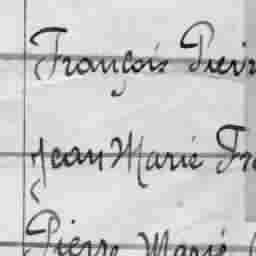 François Pierr
Jean Marie Fra
Pierre Marie